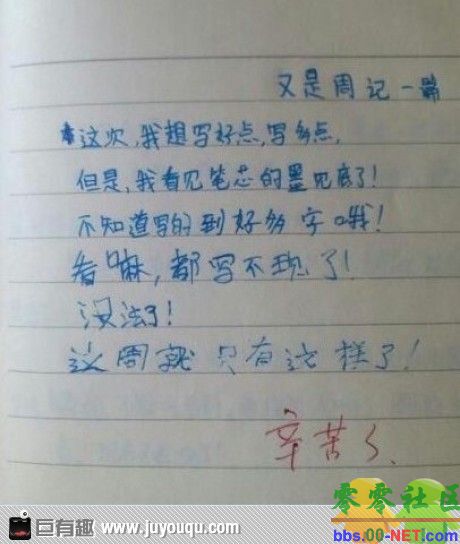 又是周记一篇
这次,我想写好点,写多点,
但是,我看见笔芯的墨见底了!
不知道写的到好多字哦!
看嘛,都写不现了!
没法了!
这周就只有这样了!
辛苦了、
零零社区
巨有趣 www.juyouqu.com
bbs.00-NET.com